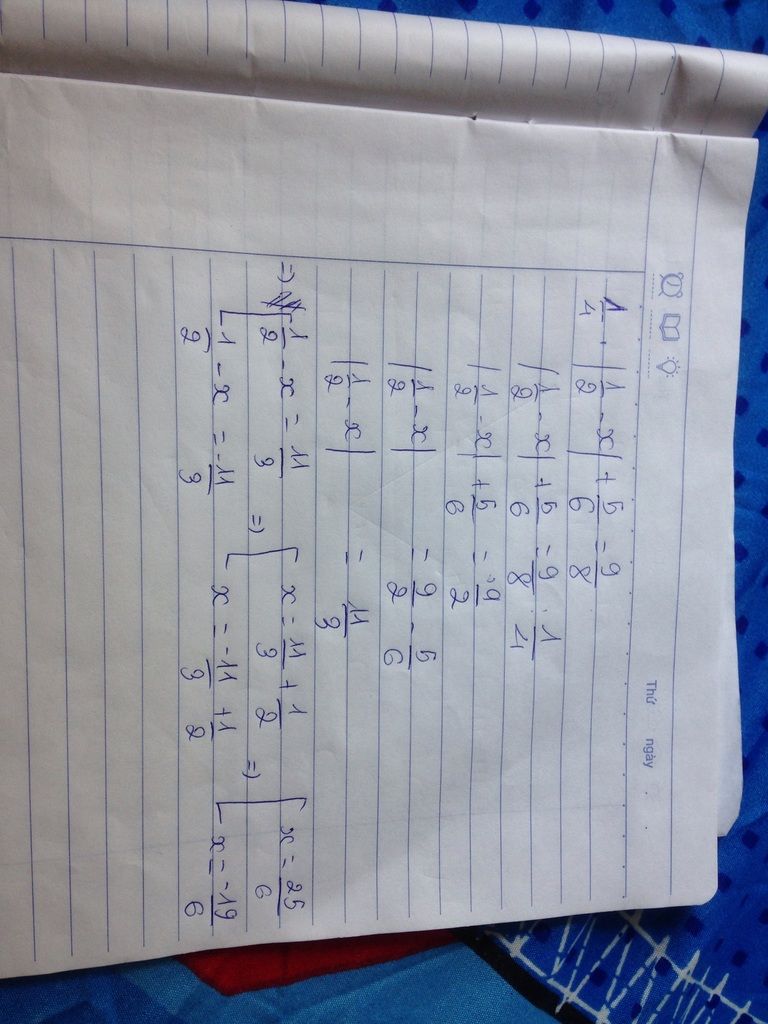 Thứ ngày
1/4 . |1/2 - x| + 5/6 = 9/8
|1/2 - x| + 5/6 = 9/8 . 1/4
|1/2 - x| + 5/6 = 9/2
|1/2 - x| = 9/2 - 5/6
|1/2 - x| = 11/3
=> [ 1/2 - x = 11/3 => [ x = 11/3 + 1/2 => [ x = 25/6
1/2 - x = -11/3 x = -11/3 + 1/2 x = -19/6